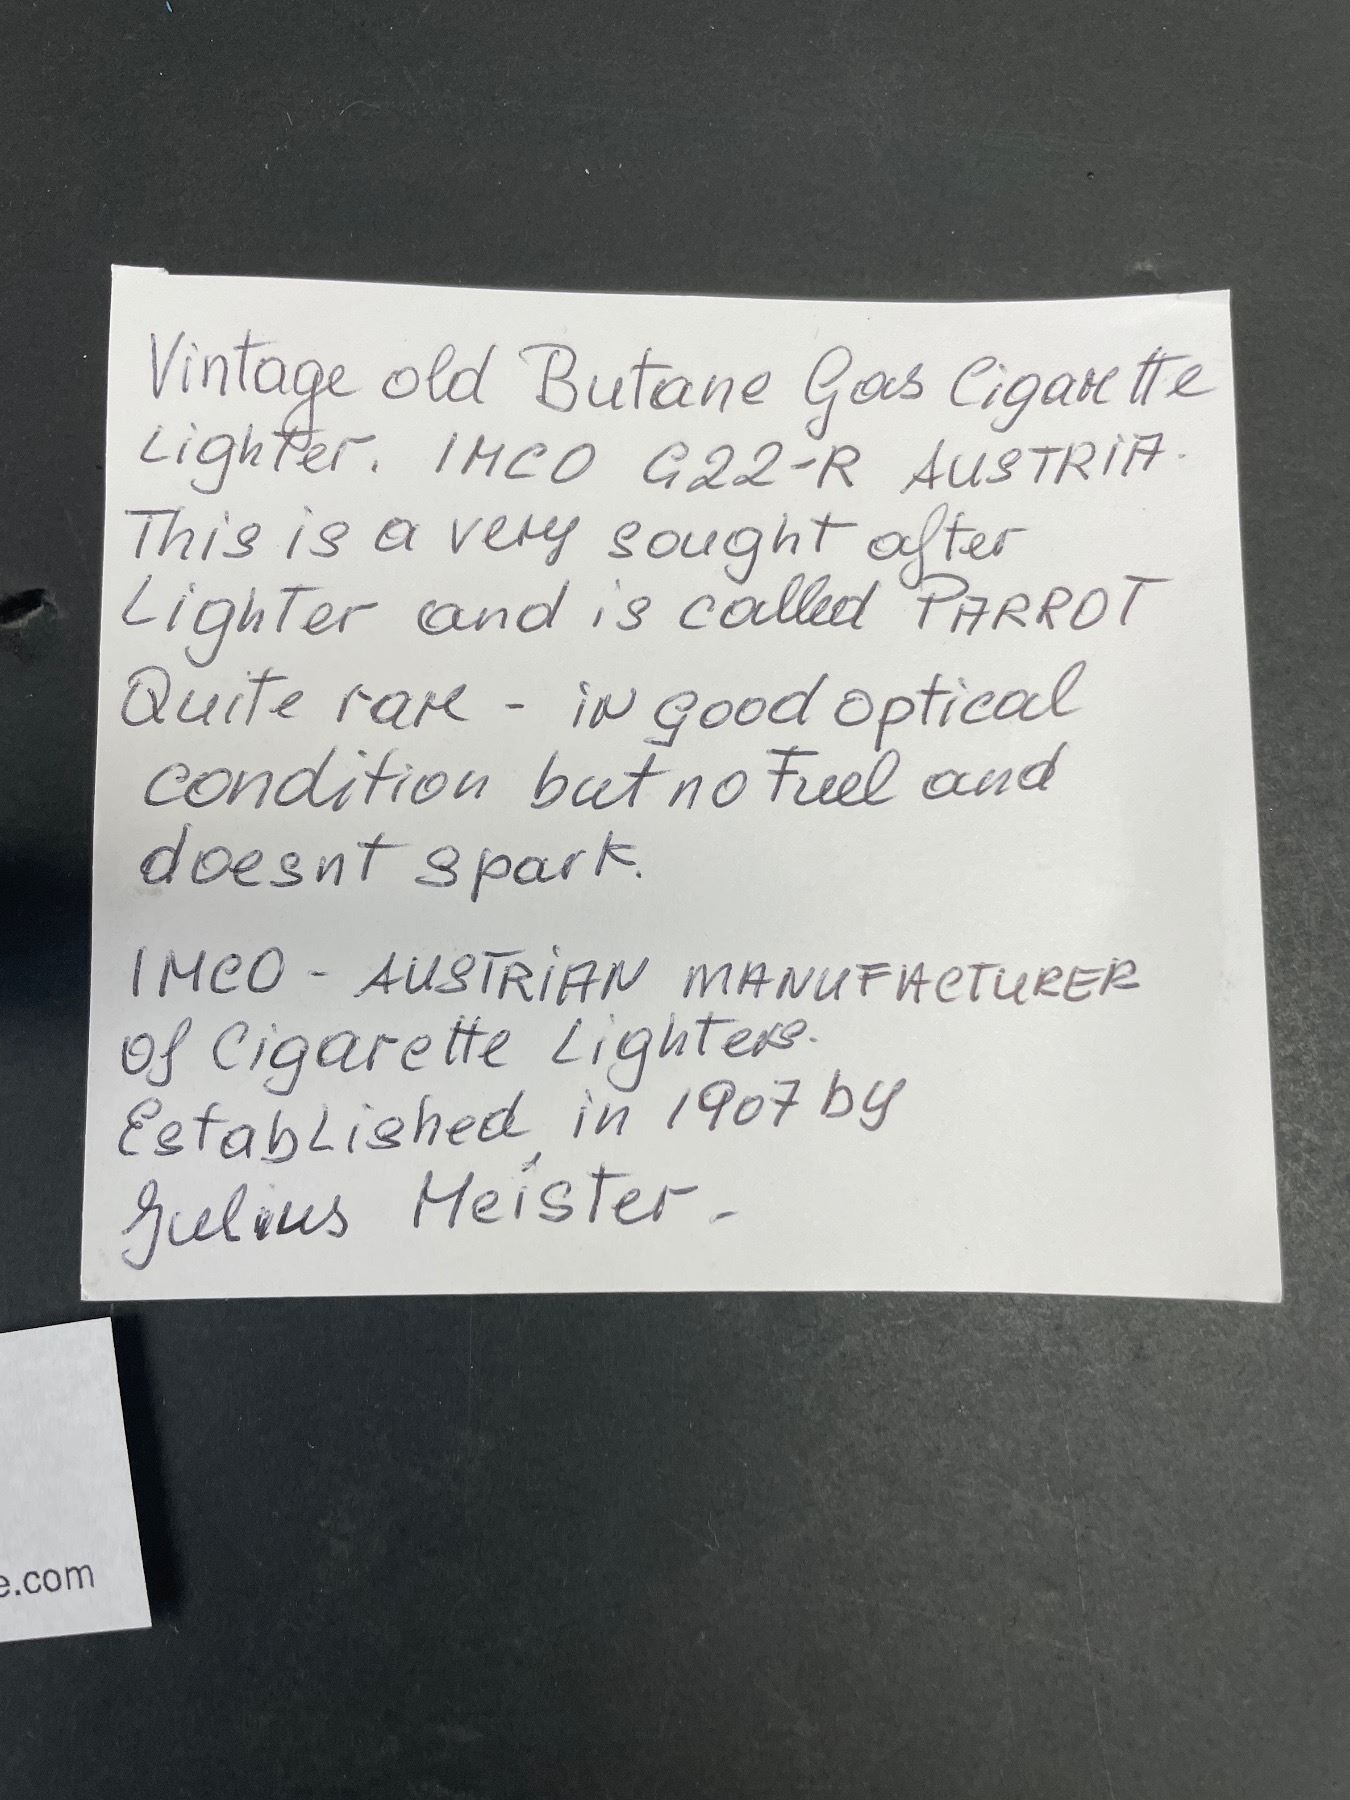 Vintage old Butane Gas Cigarette
Lighter. IMCO G22-R AUSTRIA.
This is a very sought after
Lighter and is called PARROT
Quite rare - in good optical
condition but no Fuel and
doesnt spark.
IMCO - AUSTRIAN MANUFACTURER
of Cigarette Lighters.
Established in 1907 by
Julius Meister -
e.com